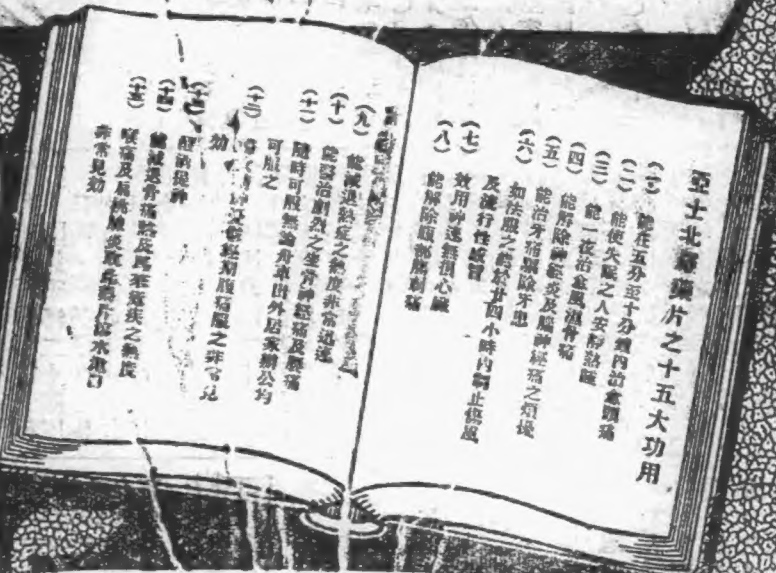 亞士北羅藥片之十五大功用
(一) 能在五分至十分鐘內治愈頭痛
(二) 能使失眠之人安靜熟睡
(三) 能一夜治愈風濕骨痛
(四) 能解除神經炎及腦神經痛之煩擾
(五) 能治牙痛驅除牙患
(六) 如依服之能於廿四小時內制止傷風
及流行性感冒
(七) 效用神速無損心臟
(八) 能解除頭部劇痛
(九) 能減退熱症之熱度非常迅速
(十) 能醫治劇烈之坐骨神經痛及腰痛
(十一) 隨時可服無論舟車出外居家辦公均
可服之
(十二) 經期腹痛服之非常見
効
醒酒提神
(十四) 能減退骨痛熱及瘧疾之熱度
(十五) 喉痛及扁桃腺炎取此藥片
非常見効